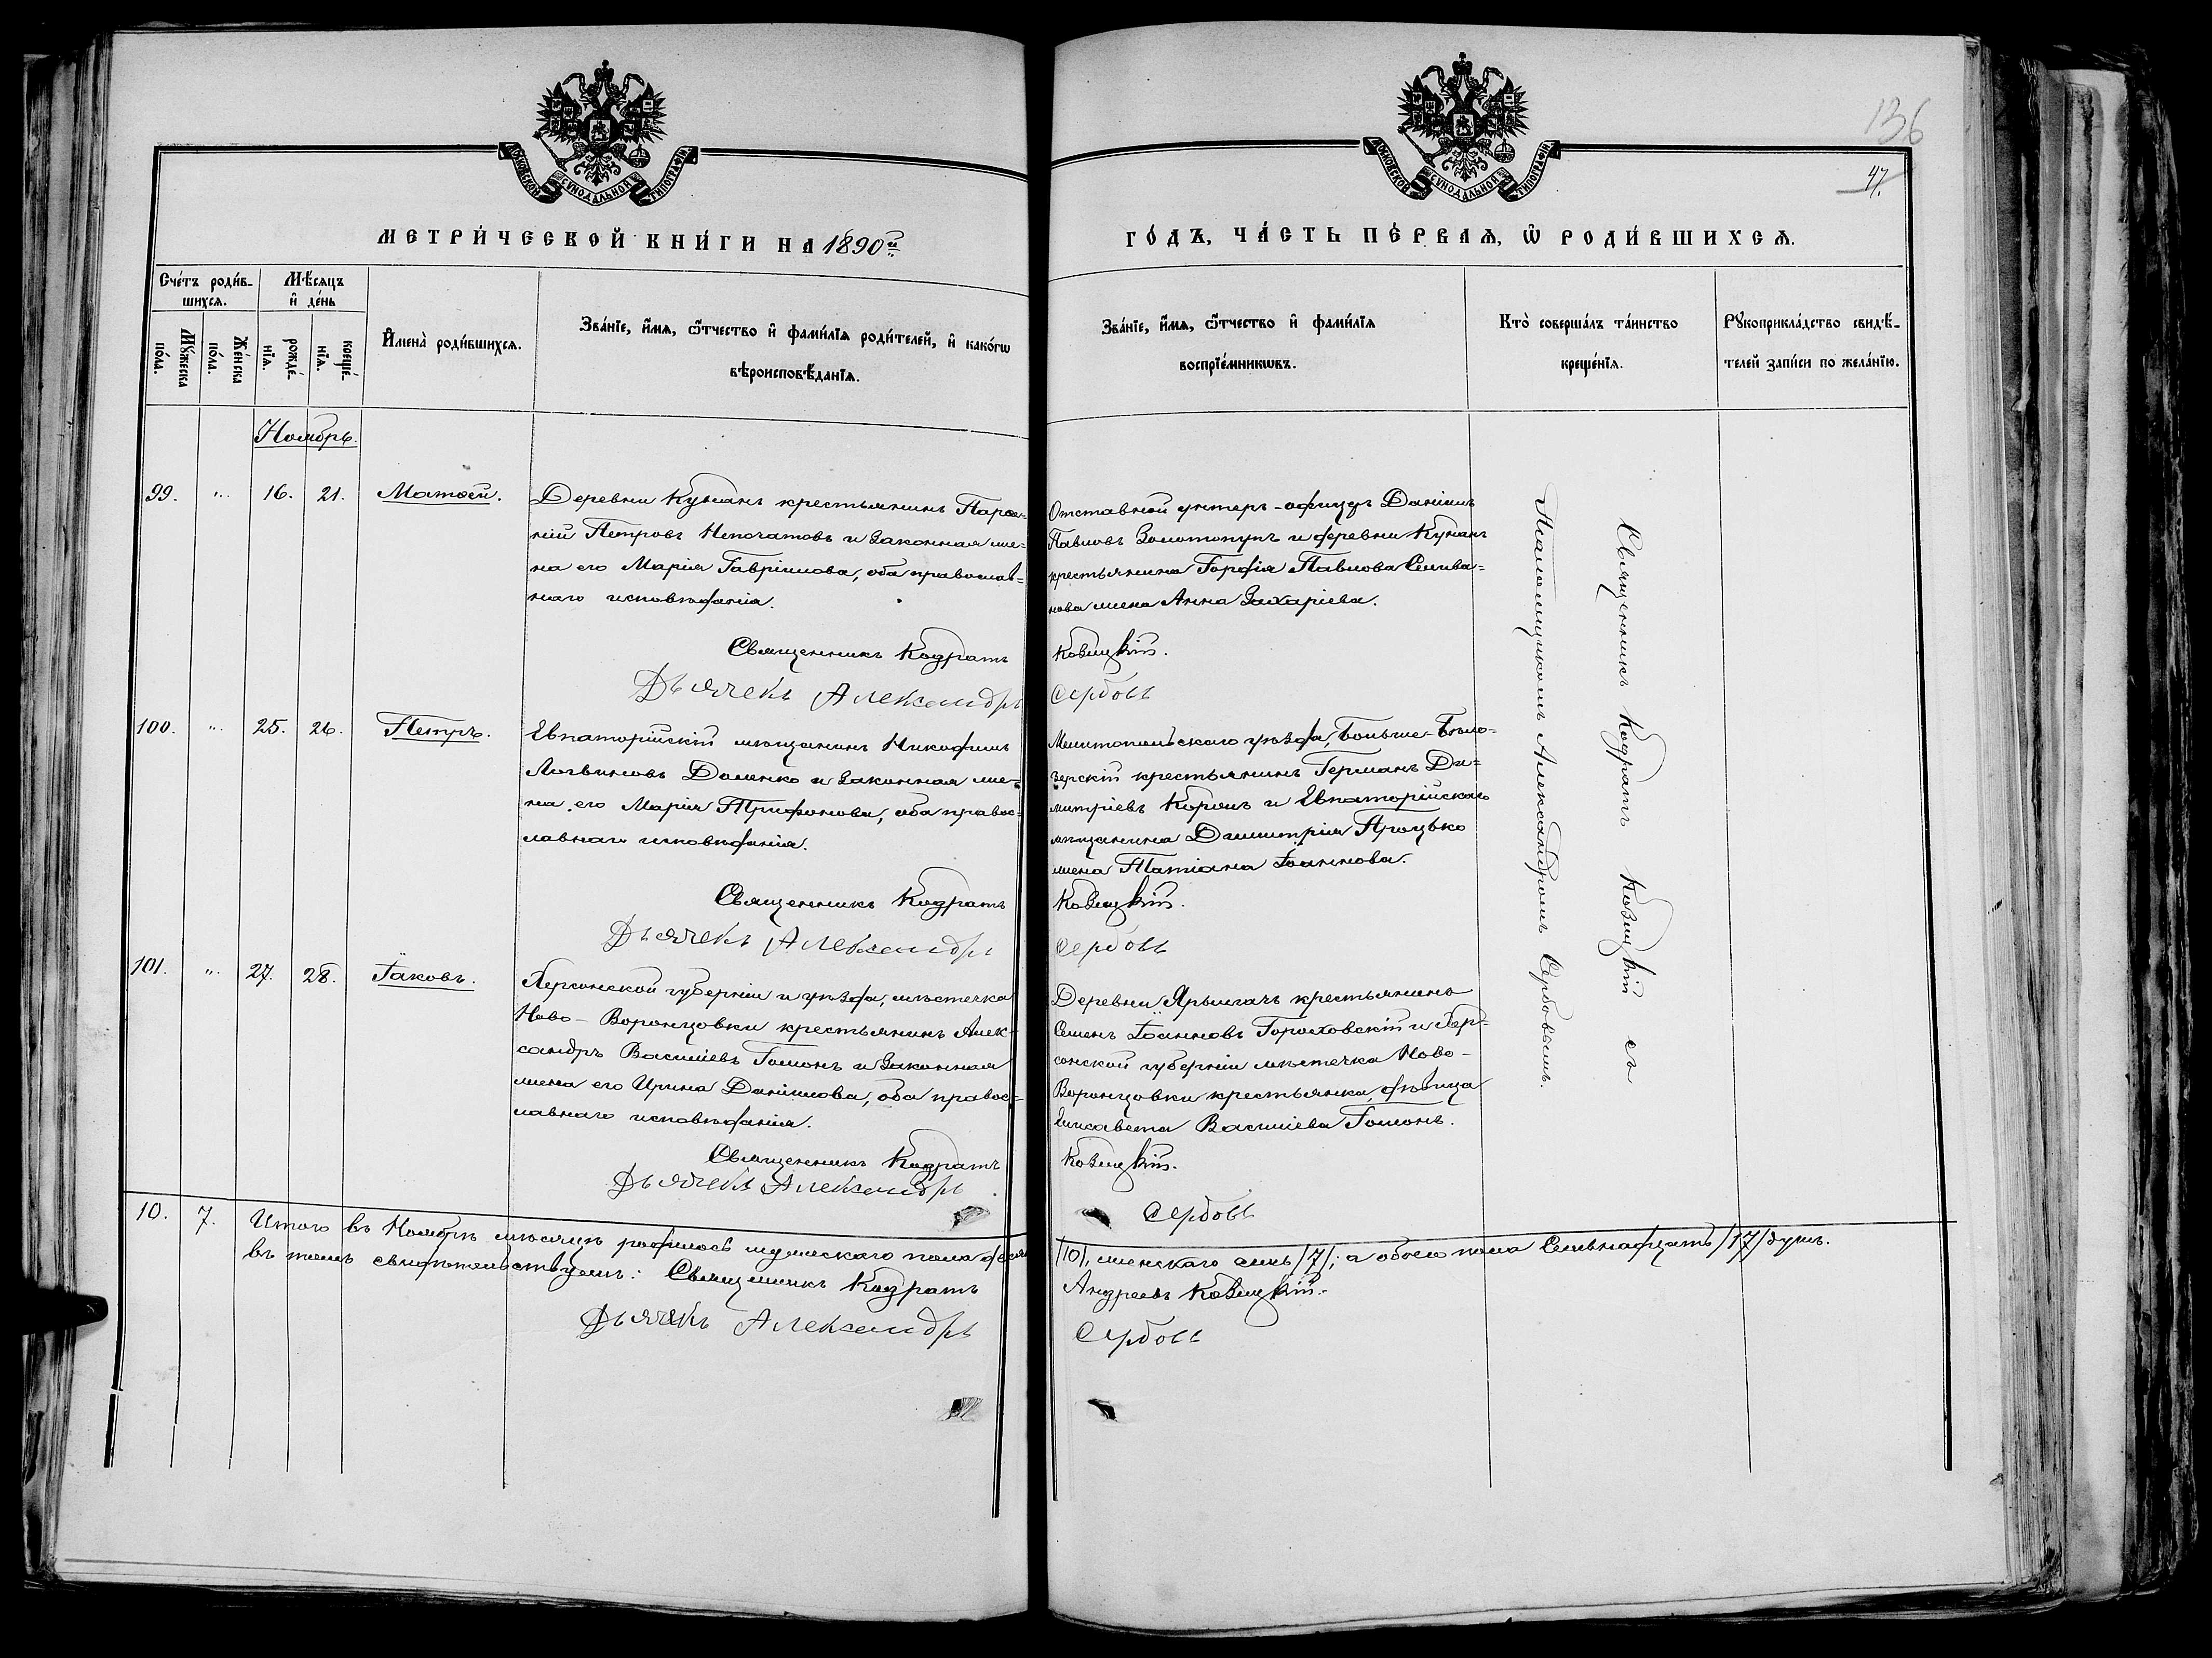 136
47.
МОСКОВСКОЙ СѴНОДАЛЬНОЙ ТИПОГРАФІИ
МОСКОВСКОЙ СѴНОДАЛЬНОЙ ТИПОГРАФІИ
МЕТРИ́ЧЕСКОЙ КНИ́ГИ НА 1890й
ГО́ДЪ, ЧА́СТЬ ПЕ́РВАЯ, Ѡ РОДИ́ВШИХСЯ.
Сче́тъ роди́в-
шихся.
Мѣ́сяцъ
и҆ де́нь
Му́жеска
по́ла.
Же́нска
по́ла.
рожде́-
нїя.
креще́-
нїя.
И҆мена̀ роди́вшихся.
Зва́нїе, и҆́мя, ѻ҆́тчество и҆ фами́лїя роди́телей, и҆ како́гѡ
вѣроисповѣ́данїя.
Зва́нїе, и҆́мя, ѻ҆́тчество и҆ фами́лїя
воспрїе́мникѡвъ.
Кто̀ соверша́лъ та́инство
креще́нїя.
Рꙋкоприкла́дство свидѣ́-
телей за́писи по жела́нїю.
Ноябрь.
99. " 16. 21. Матѳей.
Деревни Кунанъ крестьянинъ Парѳе-
ній Петровъ Непочатовъ и законная же-
на его Марія Гавріилова, оба православ-
наго исповѣданія.
Священникъ Кодратъ
Дьячекъ Александръ
Отставной унтеръ-офицеръ Даніилъ
Павловъ Золотопупъ и деревни Кунанъ
крестьянина Гордія Павлова Селива-
нова жена Анна Захаріева.
Ковицкій.
Сербовъ
100. " 25. 26. Петръ.
Евпаторійскій мѣщанинъ Никодимъ
Логвиновъ Доленко и законная же-
на его Марія Трифонова, оба правос-
лавнаго исповѣданія.
Священникъ Кодратъ
Дьячекъ Александръ
Мелитопольскаго уѣзда, Больше-Бѣло-
зерскій крестьянинъ Германъ Ди-
митріевъ Король и Евпаторійскаго
мѣщанина Димитрія Яроцько
жена Татіана Іоаннова.
Ковицкій.
Сербовъ
101. " 27. 28. Іаковъ.
Херсонской губерніи и уѣзда, мѣстечка
Ново-Воронцовки крестьянинъ Алек-
сандръ Василіевъ Гомонъ и законная
жена его Ирина Даніилова, оба правос-
лавнаго исповѣданія.
Священникъ Кодратъ
Дьячекъ Александръ
Деревни Ярылгачъ крестьянинъ
Семенъ Іоанновъ Гороховскій и Хер-
сонской губерніи мѣстечка Ново-
Воронцовки крестьянка, дѣвица
Елисавета Василіева Гомонъ.
Ковицкій.
Сербовъ
Священникъ Кодратъ Ковицкій съ
Псаломщикомъ Александромъ Сербовымъ.
10. 7. Итого въ Ноябрѣ мѣсяцѣ родилось мужескаго пола десять
/10/, женскаго семь /7/; а обоего пола Семьнадцать /17/ душъ.
въ томъ свидѣтельствуемъ: Священникъ Кодратъ
Андреевъ Ковицкій.
Дьячекъ Александръ
Сербовъ